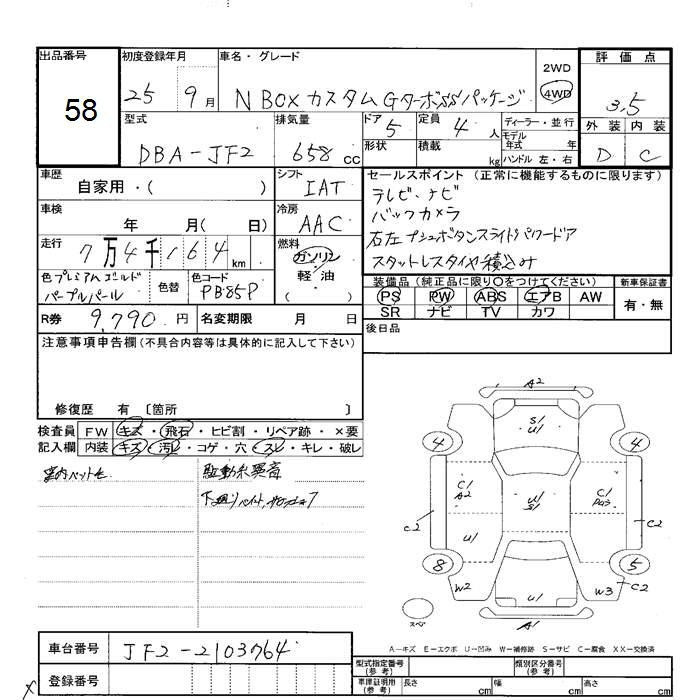 出品番号
58
初度登録年月
25 9月
車名・グレード
N BOX カスタム Gターボ SSパッケージ
2WD
4WD
評価点
3.5
外装 内装
D C
型式
DBA-JF2
排気量
658cc
ドア
5
定員
4人
ディーラー・並行
モデル年式 年
ハンドル 左・右
形状
積載 kg
車歴
自家用・( )
シフト
IAT
セールスポイント (正常に機能するものに限ります)
テレビ・ナビ
バックカメラ
右左プッシュボタンスライドパワードア
スタットレスタイヤ積込み
車検
年 月( 日)
冷房
AAC
走行
7万4千164km
燃料
ガソリン
軽・油
色 プレミアムゴールド
パープルパール
色替
色コード
PB85P
装備品 (純正品に限り〇をつけてください)
新車保証書
PS PW ABS エアB AW
SR ナビ TV カワ
有・無
R券 9,790円
名変期限 月 日
後日品
注意事項申告欄 (不具合内容等は具体的に記入して下さい)
修復歴 有 〔箇所 〕
検査員 FW キズ・飛石・ヒビ割・リペア跡・×要
記入欄 内装 キズ・汚レ・コゲ・穴・スレ・キレ・破レ
室内ペット毛
駆動系異音
下廻りペイント、サビ
A2
S/ U/
4 4
C/ A2
U/ S/
C/
C2 C2
U/
8 5
W2 U/ W3 C2
A/
スペア
A-キズ E-エクボ U-凹み W-補修跡 S-サビ C-腐食 XX-交換済
車台番号
JF2-2103764
登録番号
型式指定番号 (参考)
類別区分番号 (参考)
車庫証明用 (参考)
長さ cm 幅 cm 高さ cm